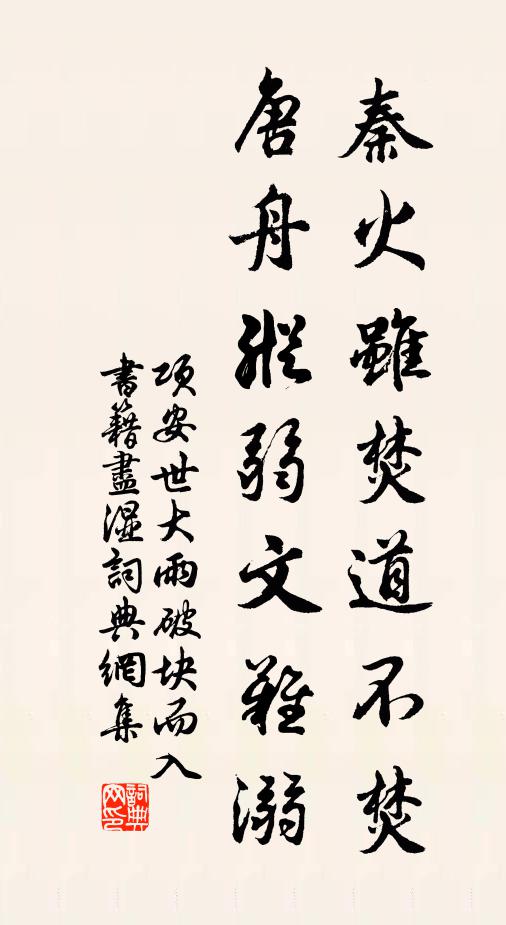 秦火雖焚道不焚
唐舟縱弱文難溺
項安世大雨破块而入
書籍盡濕詞典網集
詞典网印